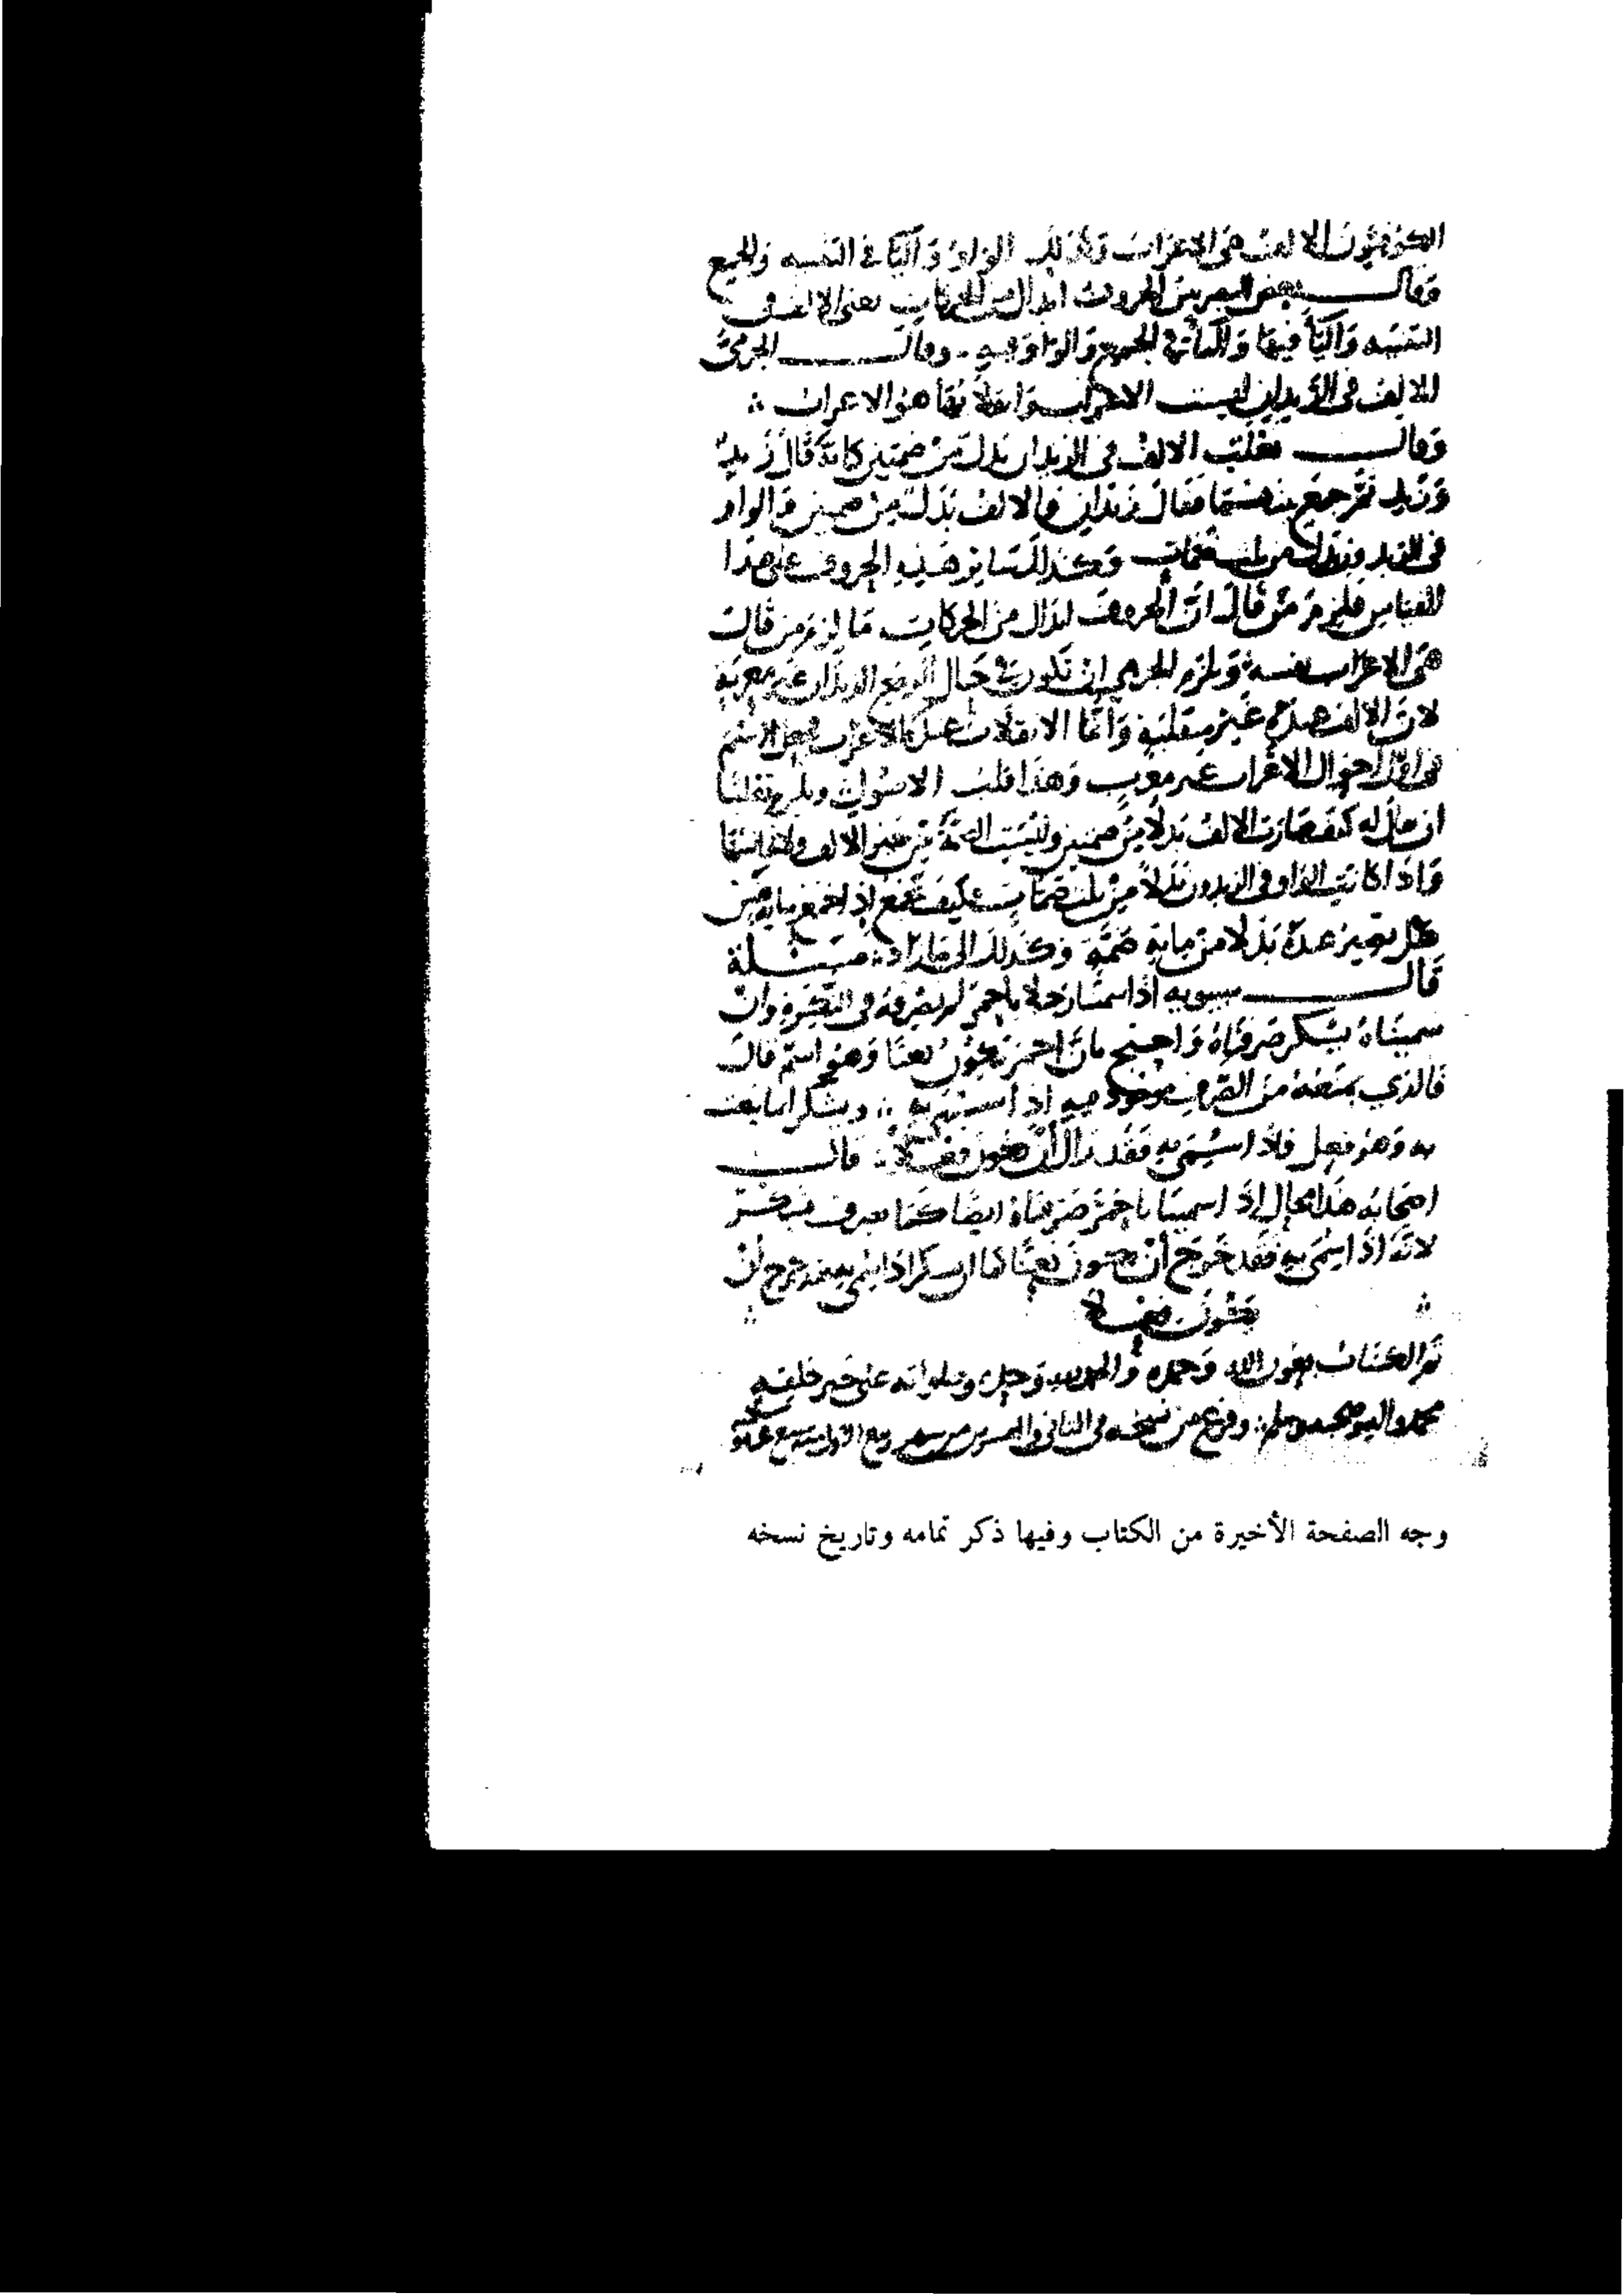 الكوفيون الالف هى الاعراب وكذلك الواو واليا فى التثنيه والجمع
وقال بعض البصريين الحروف ابدال من الحركات يعنى الالف فى
التثنيه واليا فيها واليا فى الجمع والواو فيه وقال الجرمى
الالف فى الزيدان ليست الاعراب وانقلابها هو الاعراب
وقال ثعلب الالف فى الزيدان بدل من ضمتين كانه قال زيد
وزيد ثم جمع بينهما فقال زيدان فالالف بدل من ضمتين والواو
فى الزيدون بدل من ثلث ضمات وكذلك سائر هذه الحروف على هذا
القياس فيلزم من قال ان الحروف ابدال من الحركات ما لزم من قال
هى الاعراب نفسه ويلزم الجرمى ان تكون فى حال الرفع الزيدان غير معربة
لان الالف عنده غير منقلبة وانما الانقلاب عنده الاعراب فجعل الاسم
فى اول احوال الاعراب غير معرب وهذا قلب الاصول ويلزم ثعلبا
ان يقال له كيف صارت الالف بدلا من ضمتين وليست الضمة من جنس الالف ولا
واذا كانت الواو فى الزيدون بدلا من ثلث ضمات فكيف تجمع اذا اجتمع مايه
هل تصير عنده بدلا من مايه ضمة وكذلك الى ما زاد مسئلة
قال سيبويه اذا سمينا رجلا باحمر لم نصرفه فى النكره وان
سميناه بيشكر صرفناه واحتج بان احمر يكون نعتا وهو اسم قال
فالذي يمنعه من الصرف موجود فيه اذا سميت به ويشكر انما ينعت
به وهو فعل فاذا سمى به فقد زال ان يكون فعلا قال
اصحابه هذا محال اذا سمينا باحمر صرفناه ايضا كما نصرف يشكر
لانه اذا سمى به فقد خرج ان يكون نعتا كما ان يشكر اذا سمى به فقد خرج ان
يكون فعلا
تم الكتاب بعون الله وحمده والحمد لله وحده وصلواته على خير خلقه
محمد واله وصحبه وسلم وفرغ من نسخه فى الثانى والعشرين من شهر ربيع الاول سنة تسع عشر
وجه الصفحة الأخيرة من الكتاب وفيها ذكر تمامه وتاريخ نسخه